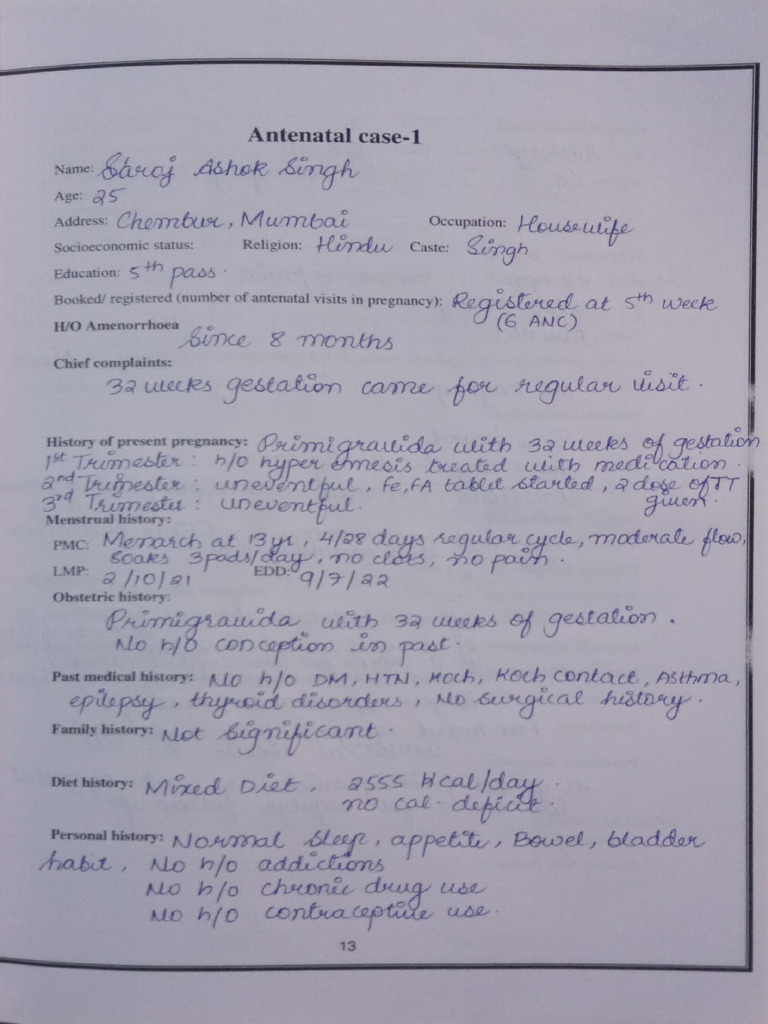 Antenatal case-1
Name: Saroj Ashok Singh
Age: 25
Address: Chembur, Mumbai Occupation: Housewife
Socioeconomic status: Religion: Hindu Caste: Singh
Education: 5th pass.
Booked/ registered (number of antenatal visits in pregnancy): Registered at 5th week
(6 ANC)
H/O Amenorrhoea
Since 8 months
Chief complaints:
32 weeks gestation came for regular visit.
History of present pregnancy: Primigravida with 32 weeks of gestation
1st Trimester: h/o hyper emesis treated with medication.
2nd Trimester: uneventful, Fe, FA tablet started, 2 dose of TT
given.
3rd Trimester: uneventful.
Menstrual history:
PMC: Menarch at 13 yr, 4/28 days regular cycle, moderate flow,
soaks 3 pads/day, no clots, no pain.
LMP: 2/10/21 EDD: 9/7/22
Obstetric history:
Primigravida with 32 weeks of gestation.
No h/o conception in past.
Past medical history: No h/o DM, HTN, Koch, Koch contact, Asthma,
epilepsy, thyroid disorders, No surgical history.
Family history: Not significant.
Diet history: Mixed Diet, 2555 Kcal/day
no cal. deficit.
Personal history: Normal sleep, appetite, Bowel, bladder
habit, No h/o addictions
No h/o chronic drug use
No h/o contraceptive use.
13